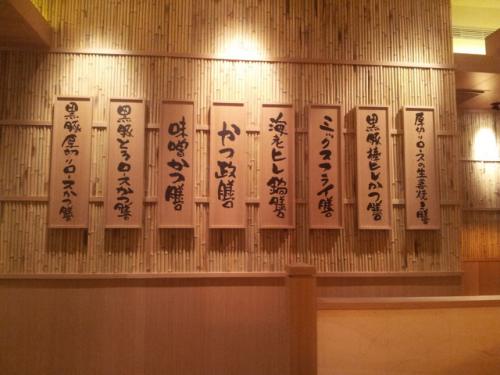 厚切りロースの生姜焼き膳
黒豚棒ヒレかつ膳
ミックスフライ膳
海老ヒレ鍋膳
かつ政膳
味噌かつ膳
黒豚とろロースかつ膳
黒豚厚切りロースかつ膳